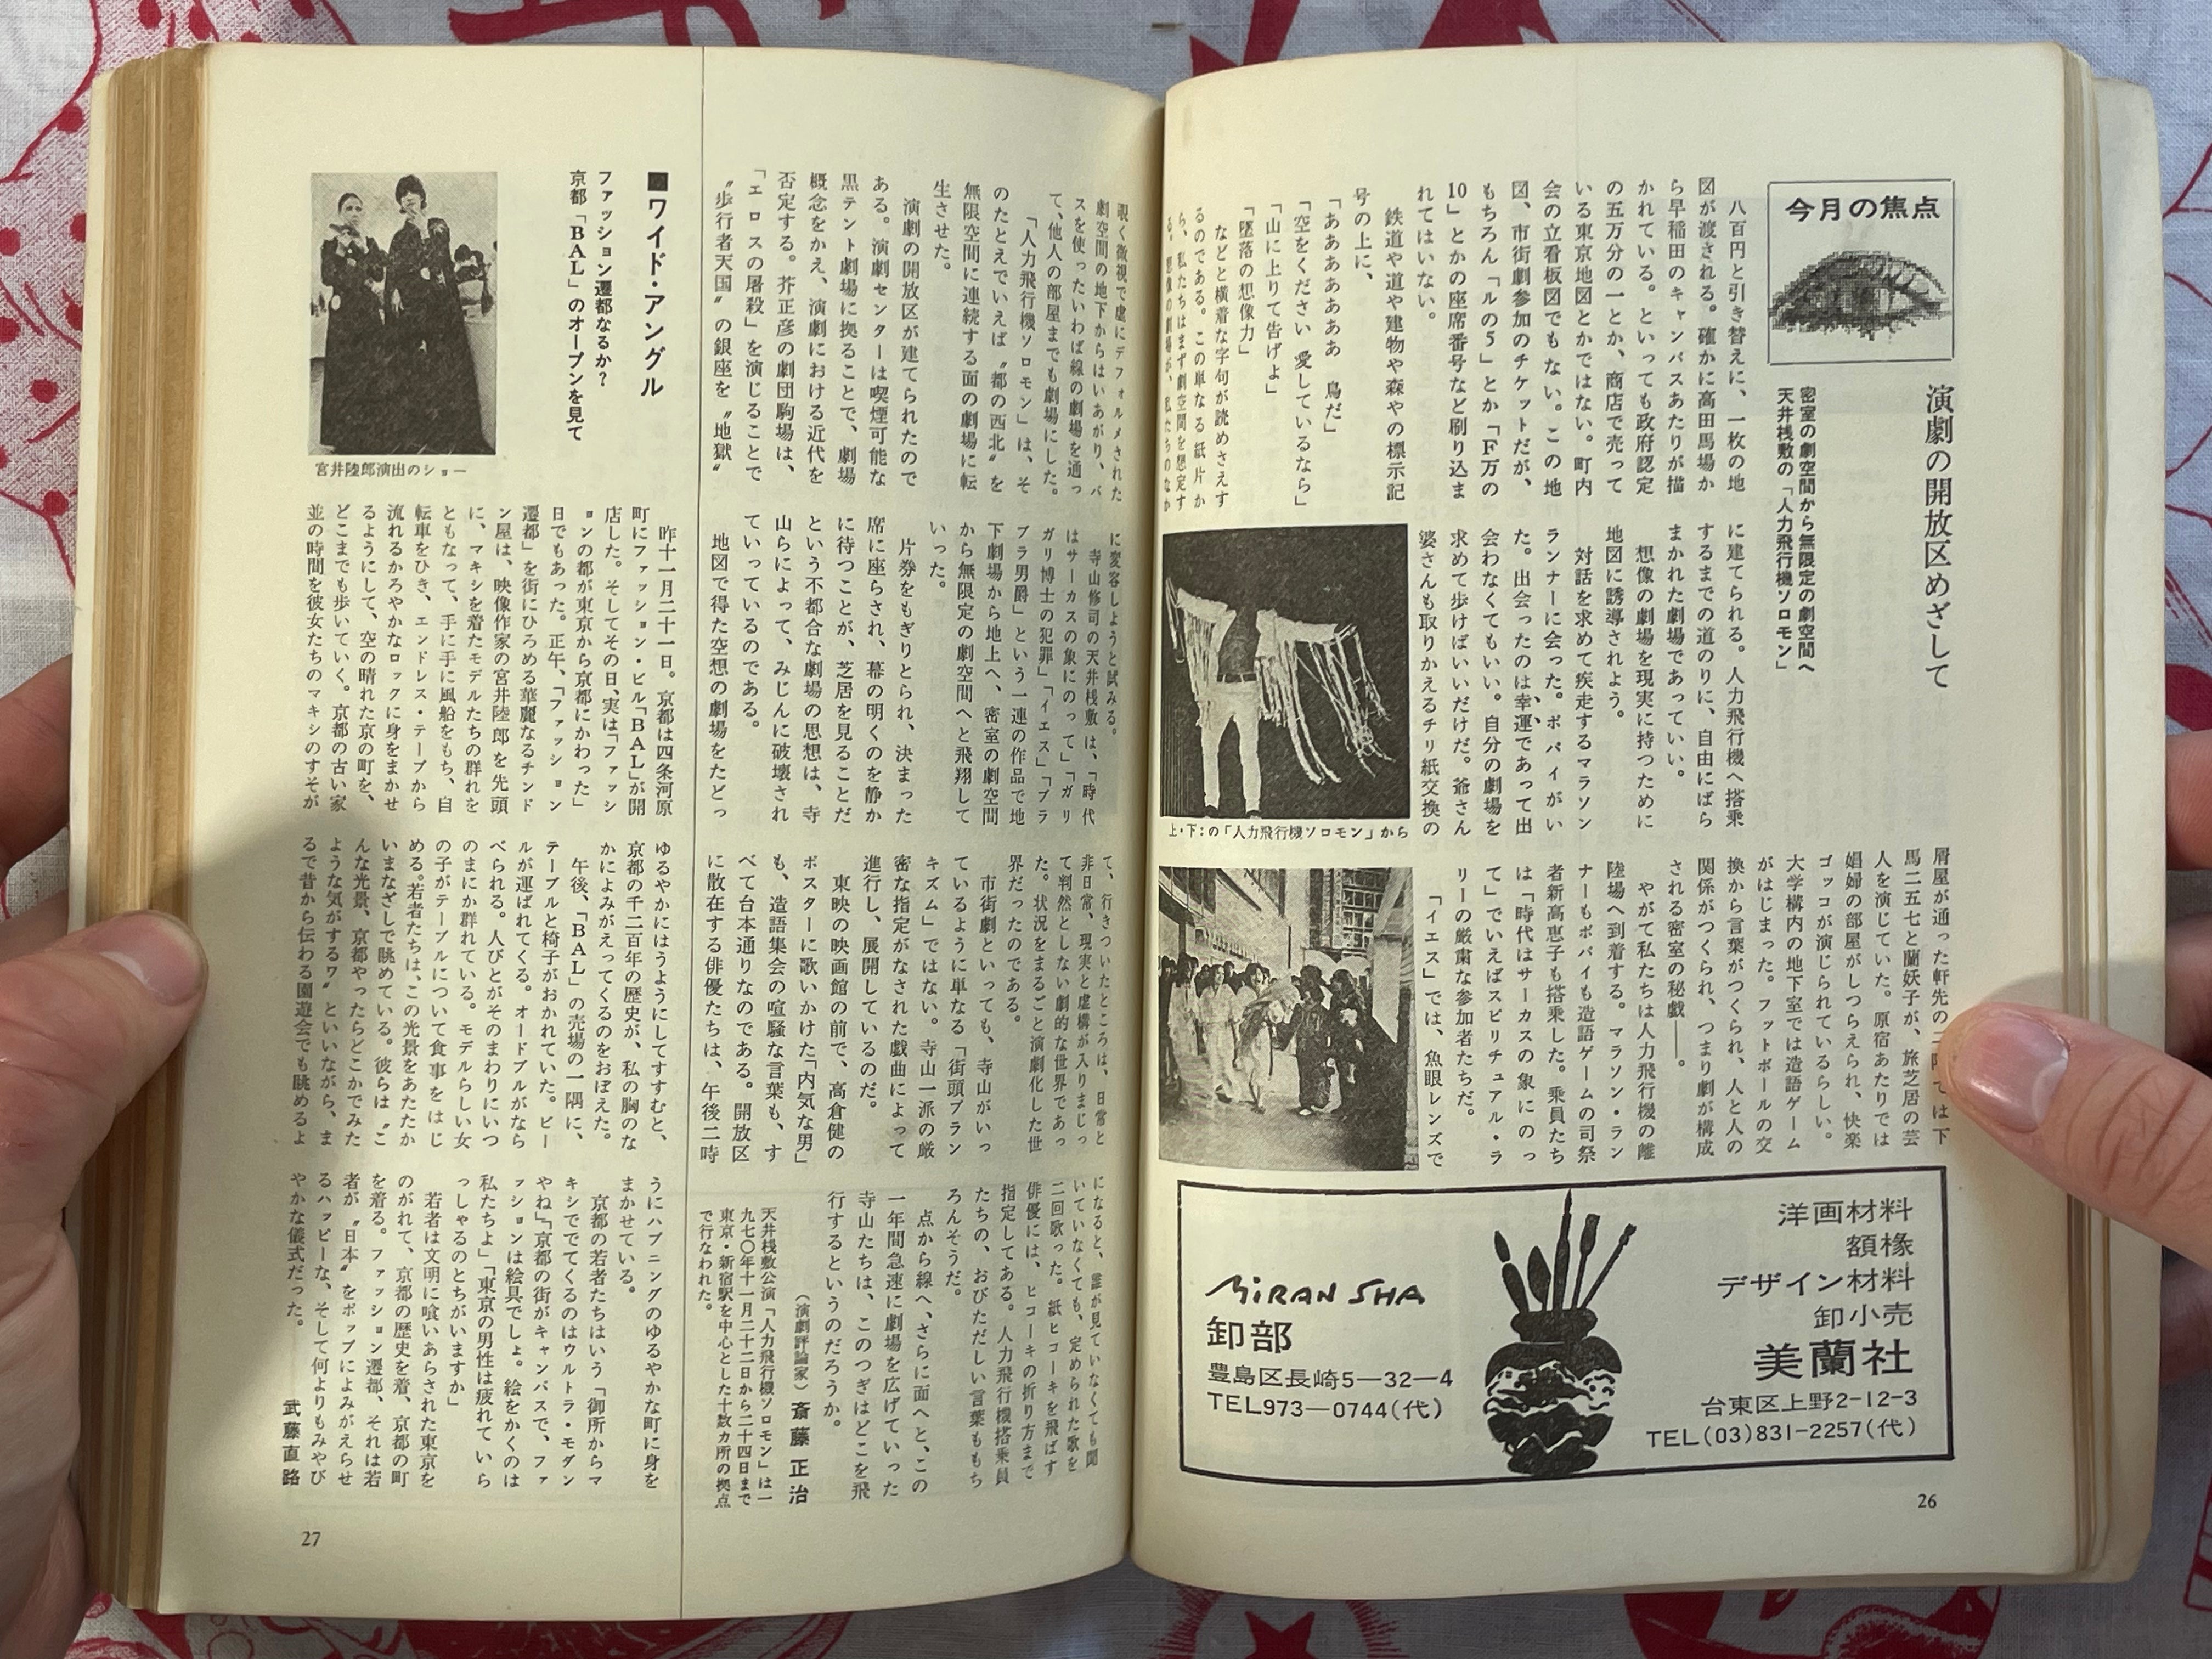 今月の焦点
演劇の開放区めざして
密室の劇空間から無限定の劇空間へ
天井桟敷の「人力飛行機ソロモン」
八百円と引き替えに、一枚の地
図が渡される。確かに高田馬場か
ら早稲田のキャンパスあたりが描
かれている。といっても政府認定
の五万分の一とか、商店で売って
いる東京地図とかではない。町内
会の立看板図でもない。この地
図、市街劇参加のチケットだが、
もちろん「ルの5」とか「F万の
10」とかの座席番号など刷り込ま
れてはいない。
鉄道や道や建物や森やの標示記
号の上に、
「ああああああ　鳥だ」
「空をください　愛しているなら」
「山に上りて告げよ」
「墜落の想像力」
などと横着な字句が読めさえす
るのである。この単なる紙片か
ら、私たちはまず劇空間を想定す
る。想像の劇場が、私たちのなか
に建てられる。人力飛行機へ搭乗
するまでの道のりに、自由にばら
まかれた劇場であっていい。
想像の劇場を現実に持つために
地図に誘導されよう。
対話を求めて疾走するマラソン
ランナーに会った。ポパイがい
た。出会ったのは幸運であって出
会わなくてもいい。自分の劇場を
求めて歩けばいいだけだ。爺さん
婆さんも取りかえるチリ紙交換の
上・下：の「人力飛行機ソロモン」から
屑屋が通った軒先の二階では下
馬二五七と蘭妖子が、旅芝居の芸
人を演じていた。原宿あたりでは
娼婦の部屋がしつらえられ、快楽
ゴッコが演じられているらしい。
大学構内の地下室では造語ゲーム
がはじまった。フットボールの交
換から言葉がつくられ、人と人の
関係がつくられ、つまり劇が構成
される密室の秘戯――。
やがて私たちは人力飛行機の離
陸場へ到着する。マラソン・ラン
ナーもポパイも造語ゲームの司祭
者新高恵子も搭乗した。乗員たち
は「時代はサーカスの象にのっ
て」でいえばスピリチュアル・ラ
リーの厳粛な参加者たちだ。
「イエス」では、魚眼レンズで
洋画材料
額椽
デザイン材料
卸小売
美蘭社
台東区上野2-12-3
TEL(03)831-2257(代)
MiRAN SHA
卸部
豊島区長崎5―32―4
TEL973―0744(代)
26
覗く微視で虚にデフォルメされた
劇空間の地下からはいあがり、バ
スを使ったいわば線の劇場を通っ
て、他人の部屋までも劇場にした。
「人力飛行機ソロモン」は、そ
のたとえでいえば〝都の西北〟を
無限空間に連続する面の劇場に転
生させた。
演劇の開放区が建てられたので
ある。演劇センターは喫煙可能な
黒テント劇場に拠ることで、劇場
概念をかえ、演劇における近代を
否定する。芥正彦の劇団駒場は、
「エロスの屠殺」を演じることで
〝歩行者天国〟の銀座を〝地獄〟
に変容しようと試みる。
寺山修司の天井桟敷は、「時代
はサーカスの象にのって」「ガリ
ガリ博士の犯罪」「イエス」「ブラ
ブラ男爵」という一連の作品で地
下劇場から地上へ、密室の劇空間
から無限定の劇空間へと飛翔して
いった。
片券をもぎりとられ、決まった
席に座らされ、幕の明くのを静か
に待つことが、芝居を見ることだ
という不都合な劇場の思想は、寺
山らによって、みじんに破壊され
ていっているのである。
地図で得た空想の劇場をたどっ
て、行きついたところは、日常と
非日常、現実と虚構が入りまじっ
て判然としない劇的な世界であっ
た。状況をまるごと演劇化した世
界だったのである。
市街劇といっても、寺山がいっ
ているように単なる「街頭プラン
キズム」ではない。寺山一派の厳
密な指定がなされた戯曲によって
進行し、展開しているのだ。
東映の映画館の前で、高倉健の
ポスターに歌いかけた「内気な男」
も、造語集会の喧騒な言葉も、す
べて台本通りなのである。開放区
に散在する俳優たちは、午後二時
になると、誰が見ていなくても聞
いていなくても、定められた歌を
二回歌った。紙ヒコーキを飛ばす
俳優には、ヒコーキの折り方まで
指定してある。人力飛行機搭乗員
たちの、おびただしい言葉ももち
ろんそうだ。
点から線へ、さらに面へと、この
一年間急速に劇場を広げていった
寺山たちは、このつぎはどこを飛
行するというのだろうか。
（演劇評論家）斎藤正治
天井桟敷公演「人力飛行機ソロモン」は一
九七〇年十一月二十二日から二十四日まで
東京・新宿駅を中心とした十数カ所の拠点
で行なわれた。
■ワイド・アングル
ファッション遷都なるか？
京都「BAL」のオープンを見て
宮井陸郎演出のショー
昨十一月二十一日。京都は四条河原
町にファッション・ビル「BAL」が開
店した。そしてその日、実は「ファッシ
ョンの都が東京から京都にかわった」
日でもあった。正午、「ファッション
遷都」を街にひろめる華麗なるチンド
ン屋は、映像作家の宮井陸郎を先頭
に、マキシを着たモデルたちの群れを
ともなって、手に手に風船をもち、自
転車をひき、エンドレス・テープから
流れるかろやかなロックに身をまかせ
るようにして、空の晴れた京の町を、
どこまでも歩いていく。京都の古い家
並の時間を彼女たちのマキシのすそが
ゆるやかにはうようにしてすすむと、
京都の千二百年の歴史が、私の胸のな
かによみがえってくるのをおぼえた。
午後、「BAL」の売場の一隅に、
テーブルと椅子がおかれていた。ビー
ルが運ばれてくる。オードブルがなら
べられる。人びとがそのまわりにいつ
のまにか群れている。モデルらしい女
の子がテーブルについて食事をはじ
める。若者たちは、この光景をあたたか
いまなざしで眺めている。彼らは〝こ
んな光景、京都やったらどこかでみた
ような気がするワ〟といいながら、ま
るで昔から伝わる園遊会でも眺めるよ
うにハプニングのゆるやかな町に身を
まかせている。
京都の若者たちはいう「御所からマ
キシででてくるのはウルトラ・モダン
やね」「京都の街がキャンバスで、ファ
ッションは絵具でしょ。絵をかくのは
私たちよ」「東京の男性は疲れていら
っしゃるのとちがいますか」
若者は文明に喰いあらされた東京を
のがれて、京都の歴史を着、京都の町
を着る。ファッション遷都、それは若
者が〝日本〟をポップによみがえらせ
るハッピーな、そして何よりもみやび
やかな儀式だった。
武藤直路
27